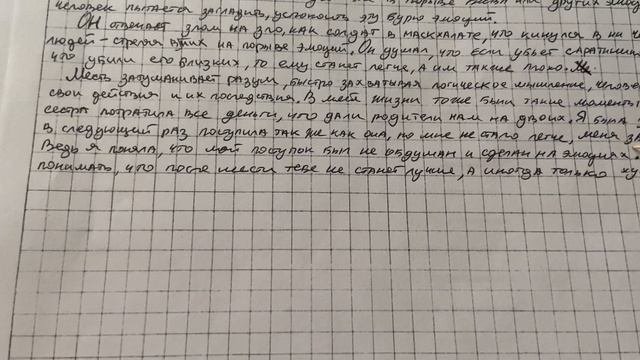 в порыве
человек пытается загладить, успокоить эту бурю эмоций.
Он отвечает злом на зло, как солдат в маскхалате, что кинулся в ни
людей – стреляя в них на порыве эмоций. Он думал, что если убьет
что убили его близких, то ему станет легче, а им также плохо.
Месть затуманивает разум, быстро захватывая логическое мышление,
свои действия и их последствия. В моей жизни тоже были такие моменты
сестра потратила все деньги, что дали родители нам на двоих. Я была
В следующий раз поступила так же как она, но мне не стало легче, меня
Ведь я поняла, что мой поступок был не обдуман и сделан на эмоциях.
понимать, что после мести тебе не станет лучше, а иногда только